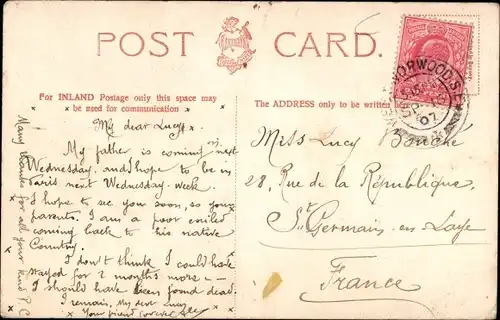 POST CARD.
For INLAND Postage only this space may
be used for communication
The ADDRESS only to be written
NORWOOD S.
07
My dear Lucy
My father is coming next
Wednesday, and I hope to be in
Paris next Wednesday week.
I hope to see you soon, so your
parents. I am a poor exiled
coming back to his native
Country.
I don't think I could have
stayed for 2 months more –
I should have been found dead.
I remain, My dear Lucy
Your friend for ever
Many thanks for all your kind P.C.
Miss Lucy Bouché
28, Rue de la République,
St Germain-en-Laye
France